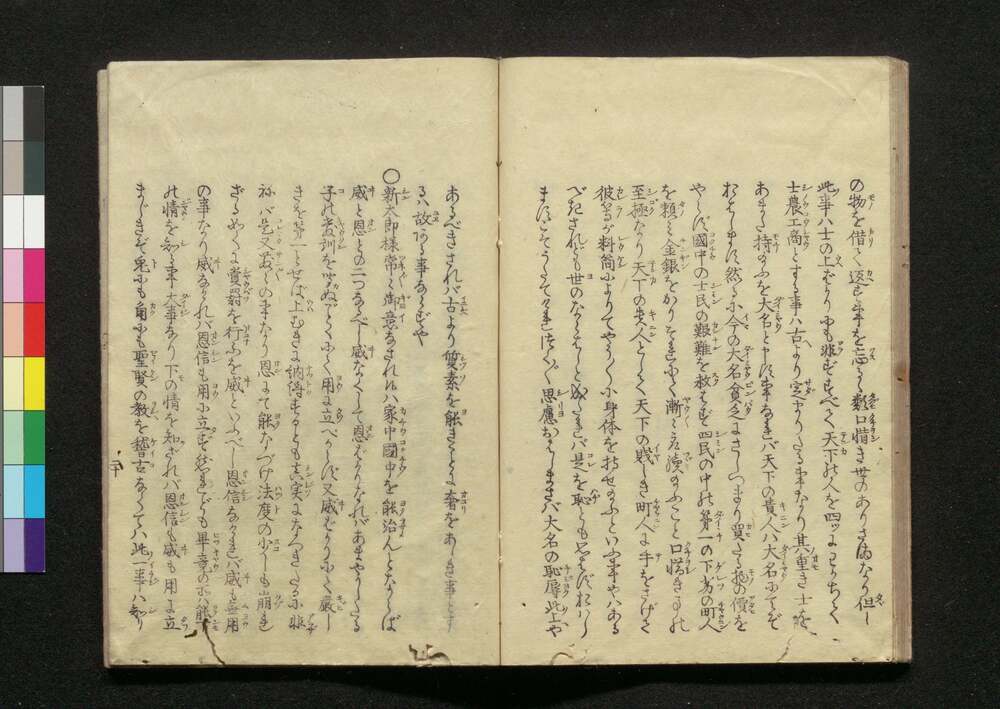 の物を借て返す事を忘るゝ数口惜き世のありさまなり但し
此事ハ士の上よりも非ずすべて天下の人を四ツにわかちて
士農工商とする事ハ古より定まりたる事なり其重き士を
あまた持のふを大名と申に事なれバ天下の貴人ハ大名にてぞ
おはします然るに今の大名貧乏にさしつまり買たる物の價を
やらず國中の士民の艱難を救はず四民の中の第一の下劣の町人
を頼て金銀をかりそれにて漸々 のふこと口惜きの
至極なり天下の貴人として天下の賤しき町人に手をさげて
彼等が料簡によりてやう〳〵に身体を持せのふといふ事やハある
べきされども世のならはしと成たれバ是を恥とも おハし
まさずこそうたてけれつく〴〵思慮おはしまさバ大名の恥辱此上や
あるべきされバ古より質素を能きことに奢をあしき事とす
るハ故ある事ならずや
○新太郎様常々御意なされ候ハ家中國中を能治んとならば
威と恩との二つなるべし威なくして恩ばかりなれバあまやかしたる
子の教訓を聞ぬごとくにて用に立べからず又威ばかりにて厳し
きを第一とせば上むきは納得するとも真実になつきたるに非
ねバ是又 の事なり恩にて能なづけ法度の少しも崩れ
ざるやうに賞罸を行ふを威といふべし恩信なけれバ威も無用
の事なり威なけれバ恩信も用に立ず然れども畢竟のハ能
の情を知る事大事なり下の情を知ざれバ恩信も威も用に立
まじきぞ兎にも角にも聖賢の教を稽古なくてハ此一事ハ知り